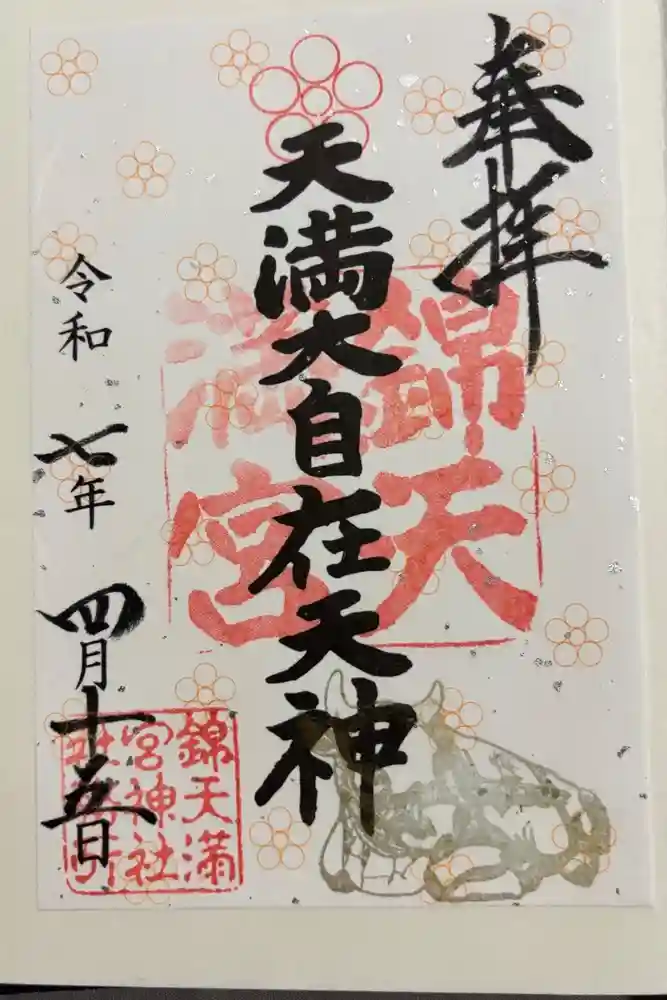 奉拝
天満大自在天神
錦天
満宮
令和七年四月十五日
錦天満
宮神社
社務所